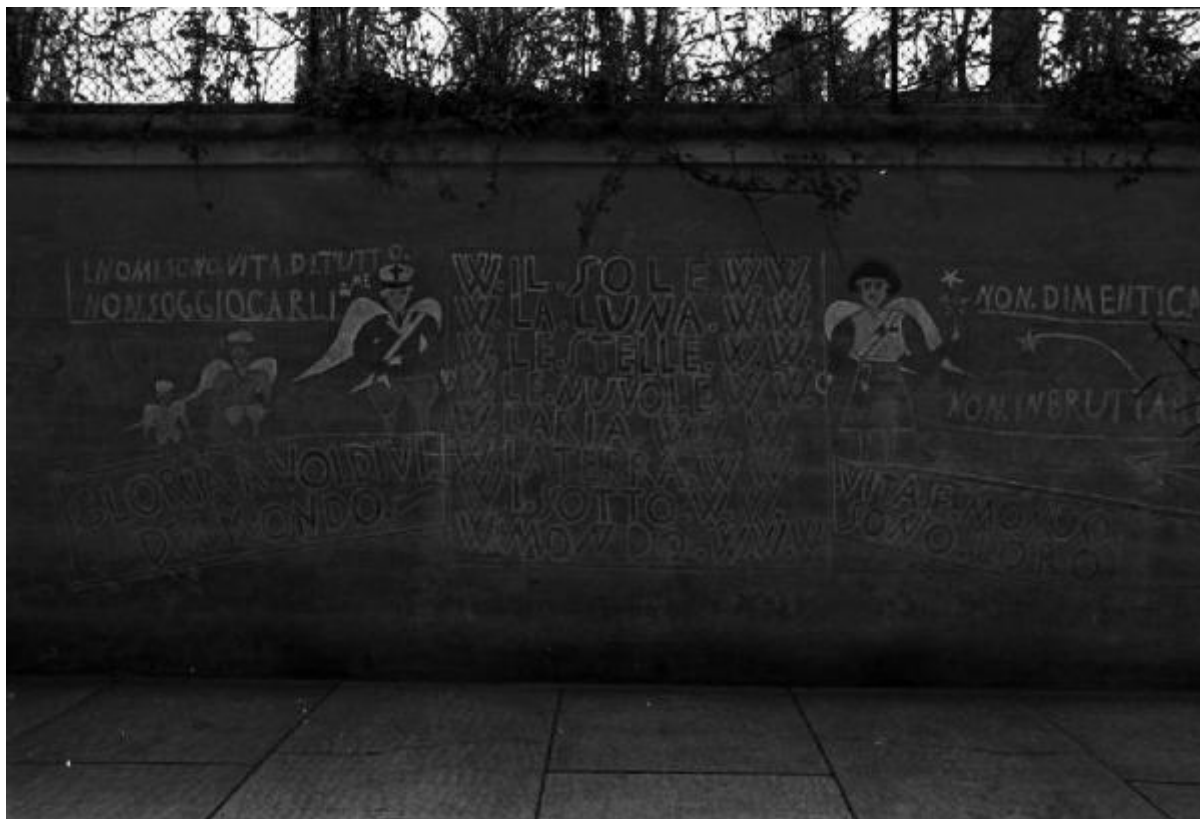 VITA DI TUTTO.
NON.SOGGIOCARLI
GLORIA.A.VOI.DIVI
DEL MONDO.
W.IL.SOLE.W.W.
W.LA.LUNA.W.W.
W.LE.STELLE.W.W.
W.LE.NUVOLE.W.W.
W.L'ARIA.W.W.
W.LA TERRA.W.W.
W.IL SOTTO.W.W.
W.MONDO.W.W.W
NON.DIMENTIC
NON.INBRUTTA
VITA.E.MONDO.
SONO.LORO.